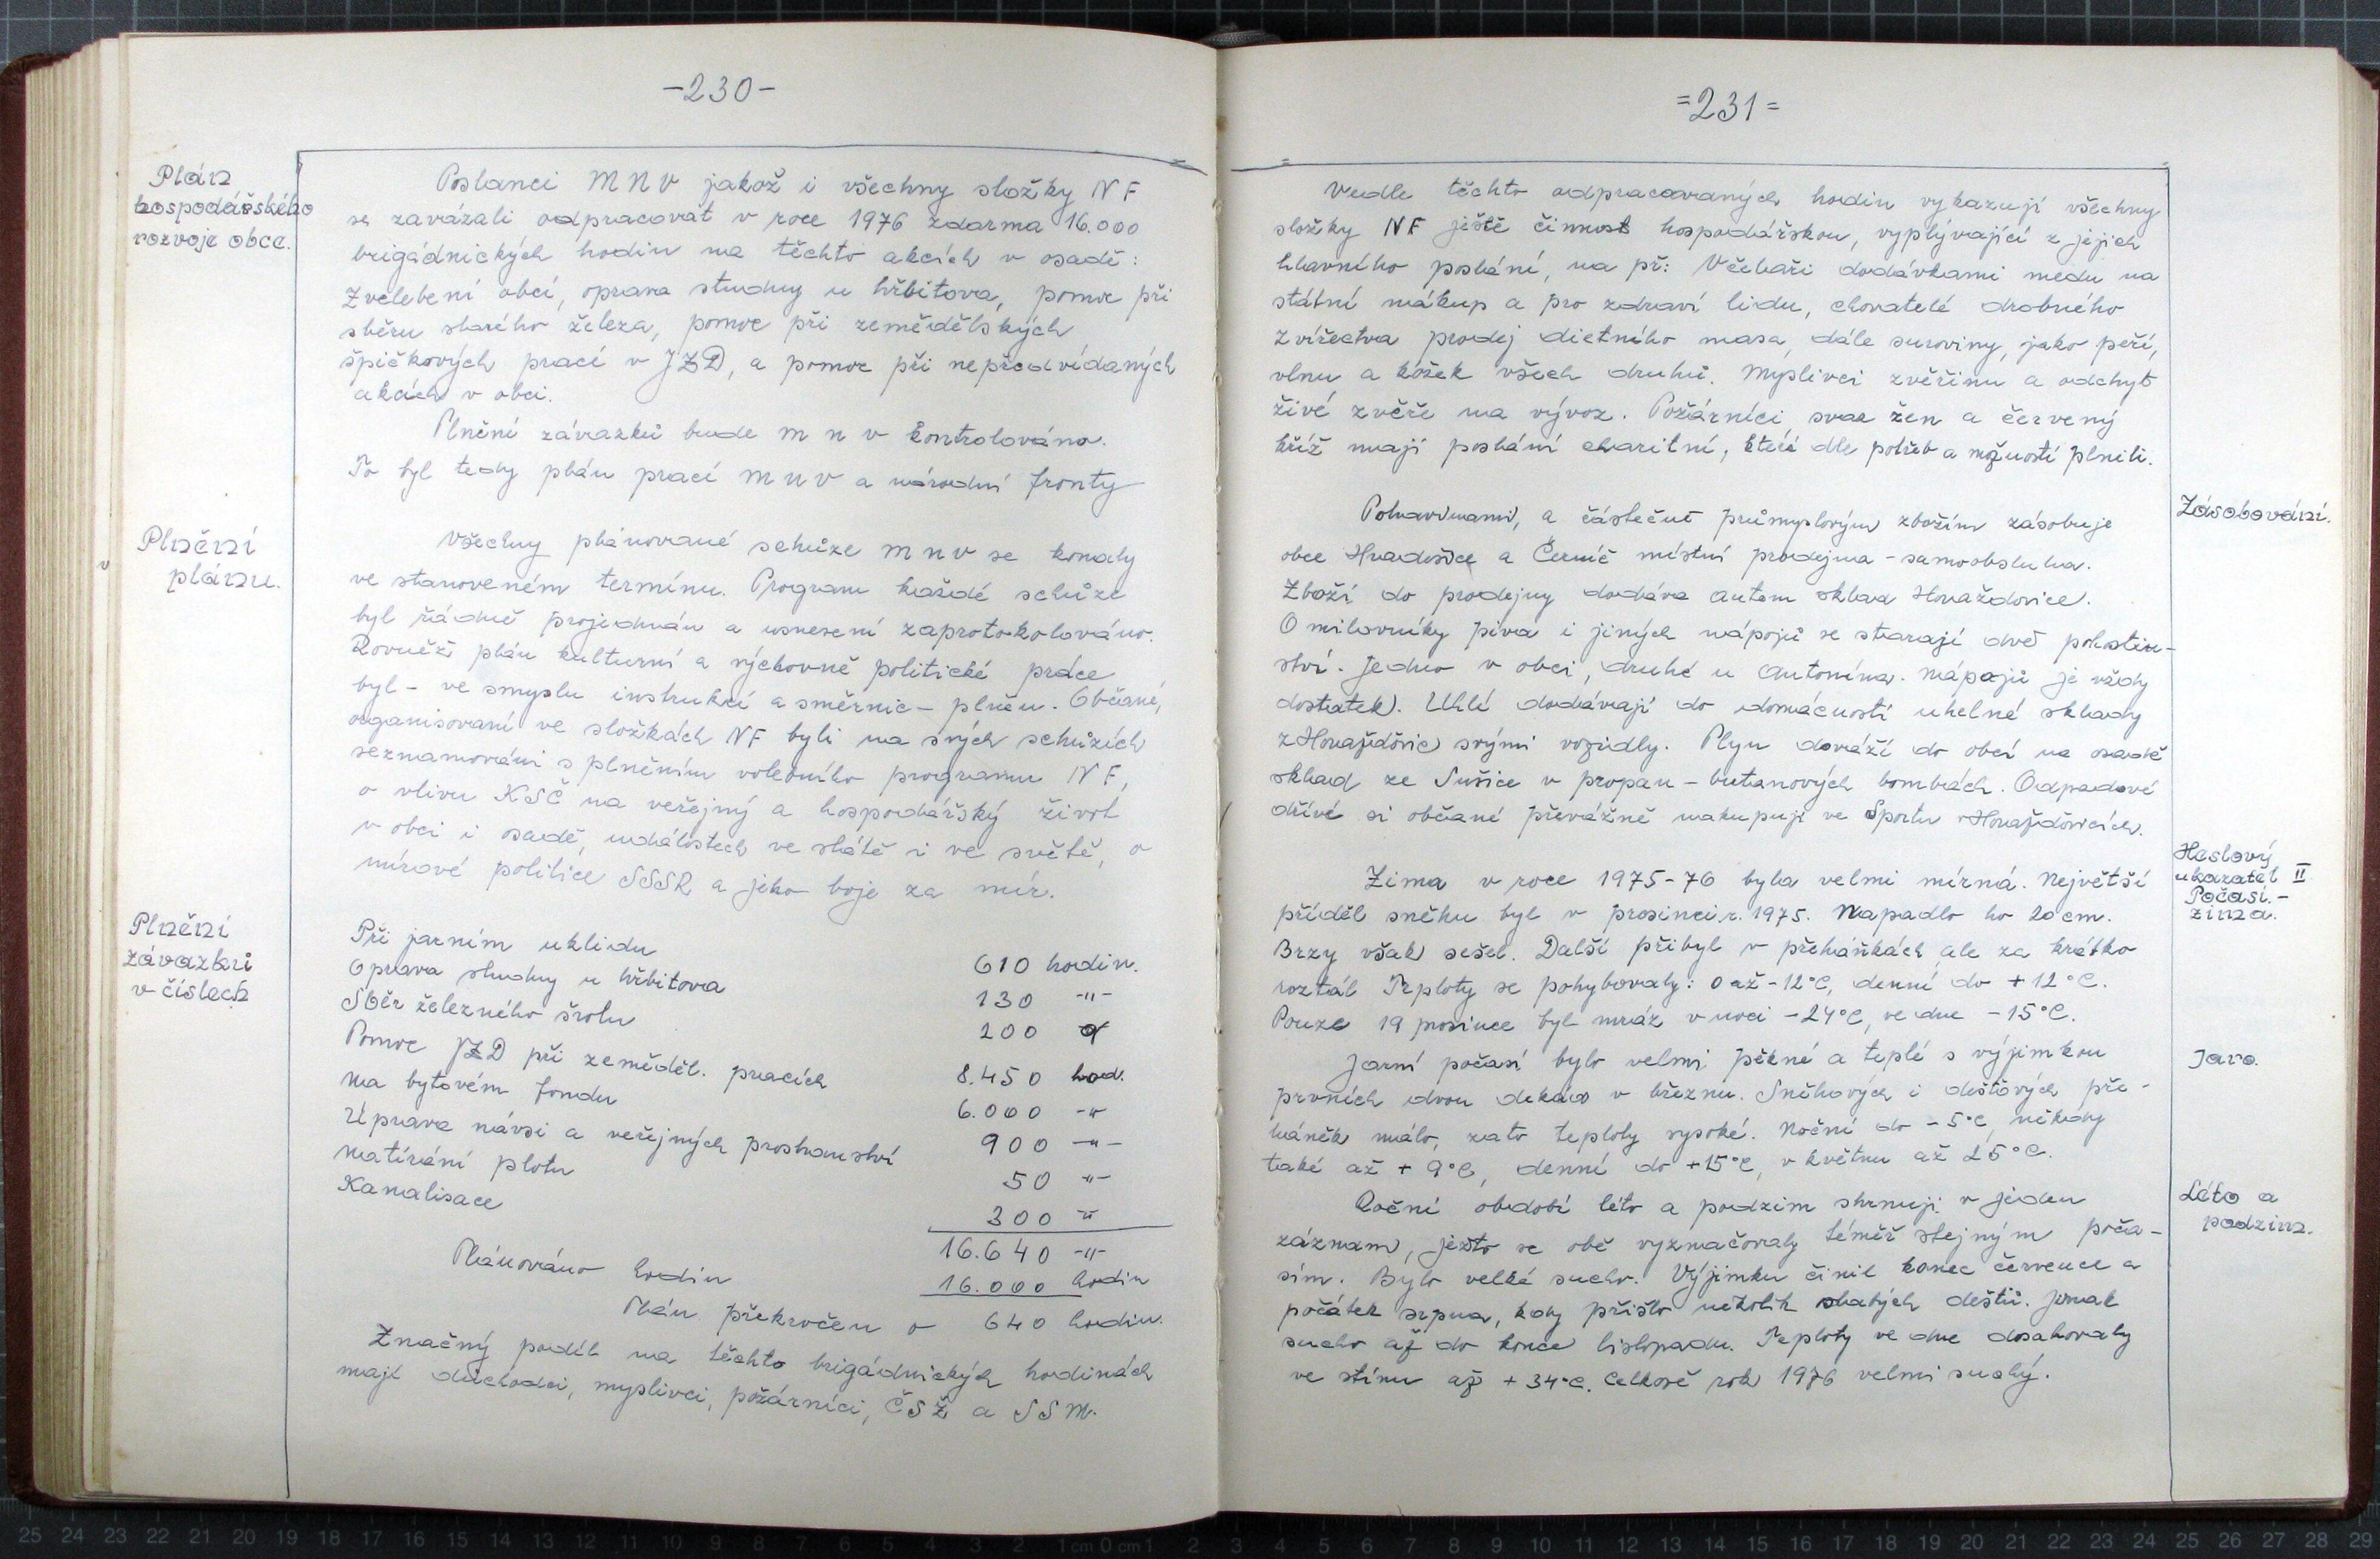 -230-
Plán
hospodářského
rozvoje obce.
Poslanci MNV jakož i všechny složky NF
se zavázali odpracovat v roce 1976 zdarma 16.000
brigádnických hodin na těchto akcích v osadě:
Zvelebení obcí, oprava studny u hřbitova, pomoc při
sběru starého železa, pomoc při zemědělských
špičkových prací v JZD, a pomoc při nepředvídaných
akcích v obci.
Plnění závazků bude m n v kontrolováno.
To byl tedy plán prací MNV a národní fronty
Plnění
plánu.
Všechny plánované schůze MNV se konaly
ve stanoveném termínu. Program každé schůze
byl řádně projednán a usnesení zaprotokolováno.
Rovněž plán kulturní a výchovně politické práce
byl - ve smyslu instrukcí a směrnic - plněn. Občané,
organisovaní ve složkách NF byli na svých schůzích
seznamováni s plněním volebního programu NF,
o vlivu KSČ na veřejný a hospodářský život
v obci i osadě, událostech ve státě i ve světě, o
mírové politice SSSR a jeho boje za mír.
Plnění
závazků
v číslech
Při jarním uklidu 610 hodin.
Oprava studny u hřbitova 130 -"-
Sběr železného šrotu 200 q
Pomoc JZD při zeměděl. pracích 8.450 hod.
Na bytovém fondu 6.000 -"
Uprava návsi a veřejných prostranství 900 -"-
Natírání plotu 50 -"-
Kanalisace 300 -"
16.640 -"-
Plánováno hodin 16.000 hodin
Plán překročen o 640 hodin.
Značný podíl na těchto brigádnických hodinách
mají důchodci, myslivci, požárníci, ČSŽ a SSM.
=231=
Vedle těchto odpracovaných hodin vykazují všechny
složky NF ještě činnost hospodářskou, vyplývající z jejich
hlavního poslání, na př: Včelaři dodávkami medu na
státní nákup a pro zdraví lidu, chovatelé drobného
zvířectva prodej dietního masa, dále suroviny, jako peří,
vlnu a kožek všech druhů. Myslivci zvěřinu a odchyt
živé zvěře na vývoz. Požárníci, svaz žen a červený
kříž mají poslání charitní, které dle potřeb a možností plnili.
Zásobování.
Potravinami, a částečně průmyslovým zbožím zásobuje
obce Hradešice a Černíč místní prodejna - samoobsluha.
Zboží do prodejny dodáva autem sklad Horažďovice.
O milovníky piva i jiných nápojů se starají dvě pohostin-
ství. Jedno v obci, druhé u Antonína. Nápojů je vždy
dostatek. Uhlí dodávají do domácností uhelné sklady
z Horažďovic svými vozidly. Plyn dováží do obcí na osadě
sklad ze Sušice v propan - butanových bombách. Odpadové
dříví si občané převážně nakupují ve Sportu v Horažďovicích.
Heslový
ukazatel II
Počasí.-
zima.
Zima v roce 1975-76 byla velmi mírná. Největší
příděl sněhu byl v prosinci r. 1975. Napadlo ho 20 cm.
Brzy však sešel. Další přibyl v přeháňkách ale za krátko
roztál Teploty se pohybovaly: 0 až -12°C, denní do +12°C.
Pouze 19 prosince byl mráz v noci -24°C, ve dne -15°C.
Jaro.
Jarní počasí bylo velmi pěkné a teplé s výjimkou
prvních dvou dekád v březnu. Sněhových i dešťových pře-
háněk málo, zato teploty vysoké. Noční do -5°C, někdy
také až +9°C, denní do +15°C, v květnu až 25°C.
Léto a
podzim.
Roční období léto a podzim shrnuji v jeden
záznam, ježto se obě vyznačovaly téměř stejným poča-
sím. Bylo velké sucho. Výjimku činil konec července a
počátek srpna, kdy přišlo několik slabých dešťů. Jinak
sucho až do konce listopadu. Teploty ve dne dosahovaly
ve stínu až +34°C. Celkově rok 1976 velmi suchý.